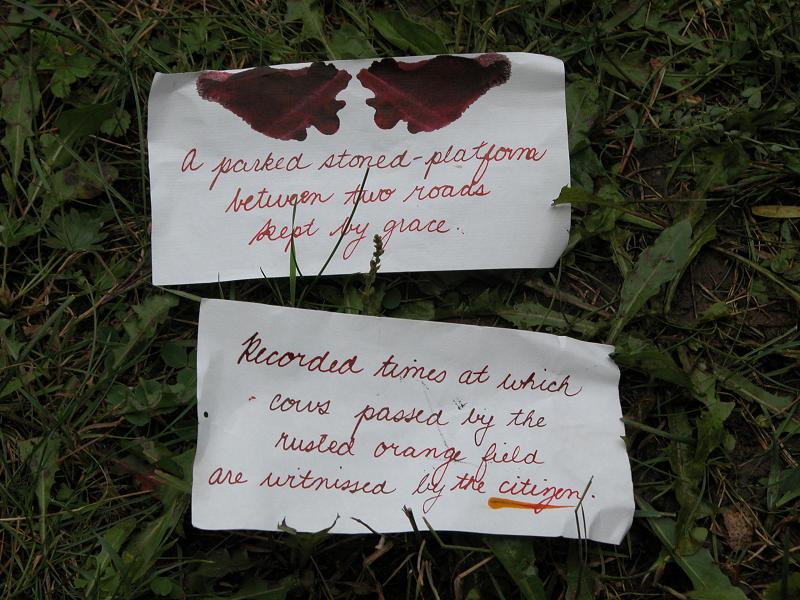 A parked stoned-platform
between two roads
kept by grace.
Recorded times at which
cows passed by the
rusted orange field
are witnissed by the citizen.